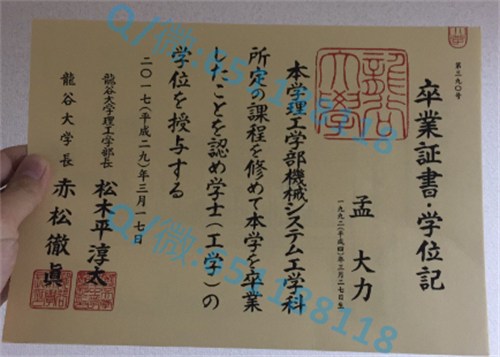 第三九〇号
卒業証書・学位記
孟 大力
一九九二(平成四)年三月二七日生
本学理工学部機械システム工学科
所定の課程を修めて本学を卒業
したことを認め学士(工学)の
学位を授与する
二〇一七(平成二九)年三月一七日
龍谷大学理工学部長 松木平 淳太
龍谷大学長 赤松 徹眞
龍谷
大學
Q/微:651188118
Q/微:651188118